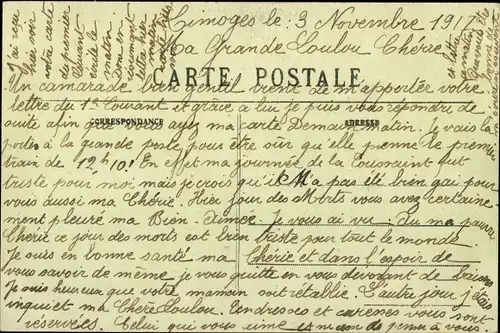 Limoges le 3 Novembre 1917
Ma Grande Loulou Chérie
CARTE POSTALE
Un camarade bien gentil vient de m'apporter votre
lettre du 1er Courant et grâce à lui je puis vous répondre de
suite afin que vous ayez ma carte Demain matin. Je vais la
CORRESPONDANCE
ADRESSE
porter à la grande poste pour être sur qu'elle prenne le premier
train de 12h10! En effet ma journée de la Toussaint fut
triste pour moi mais je crois qu'il M'a pas été bien gai pour
vous aussi ma Chérie. Hier jour des Morts vous avez certaine-
ment pleuré ma Bien-Aimée. Je vous ai vu. Tu ma pauvre
Chérie ce jour des morts est bien triste pour tout le monde
Je suis en bonne santé ma Chérie et dans l'espoir de
vous savoir de même je vous quitte en vous dévorant de baisers
Je suis heureux que votre maman soit rétablie. L'autre jour j'étais
inquiet ma Chère Loulou. Tendresses et caresses vous sont
réservées. Celui qui vous aime et ne pense à vous
J'ai reçu
hier soir
votre carte
de premier
Courant
et la lettre
matin.